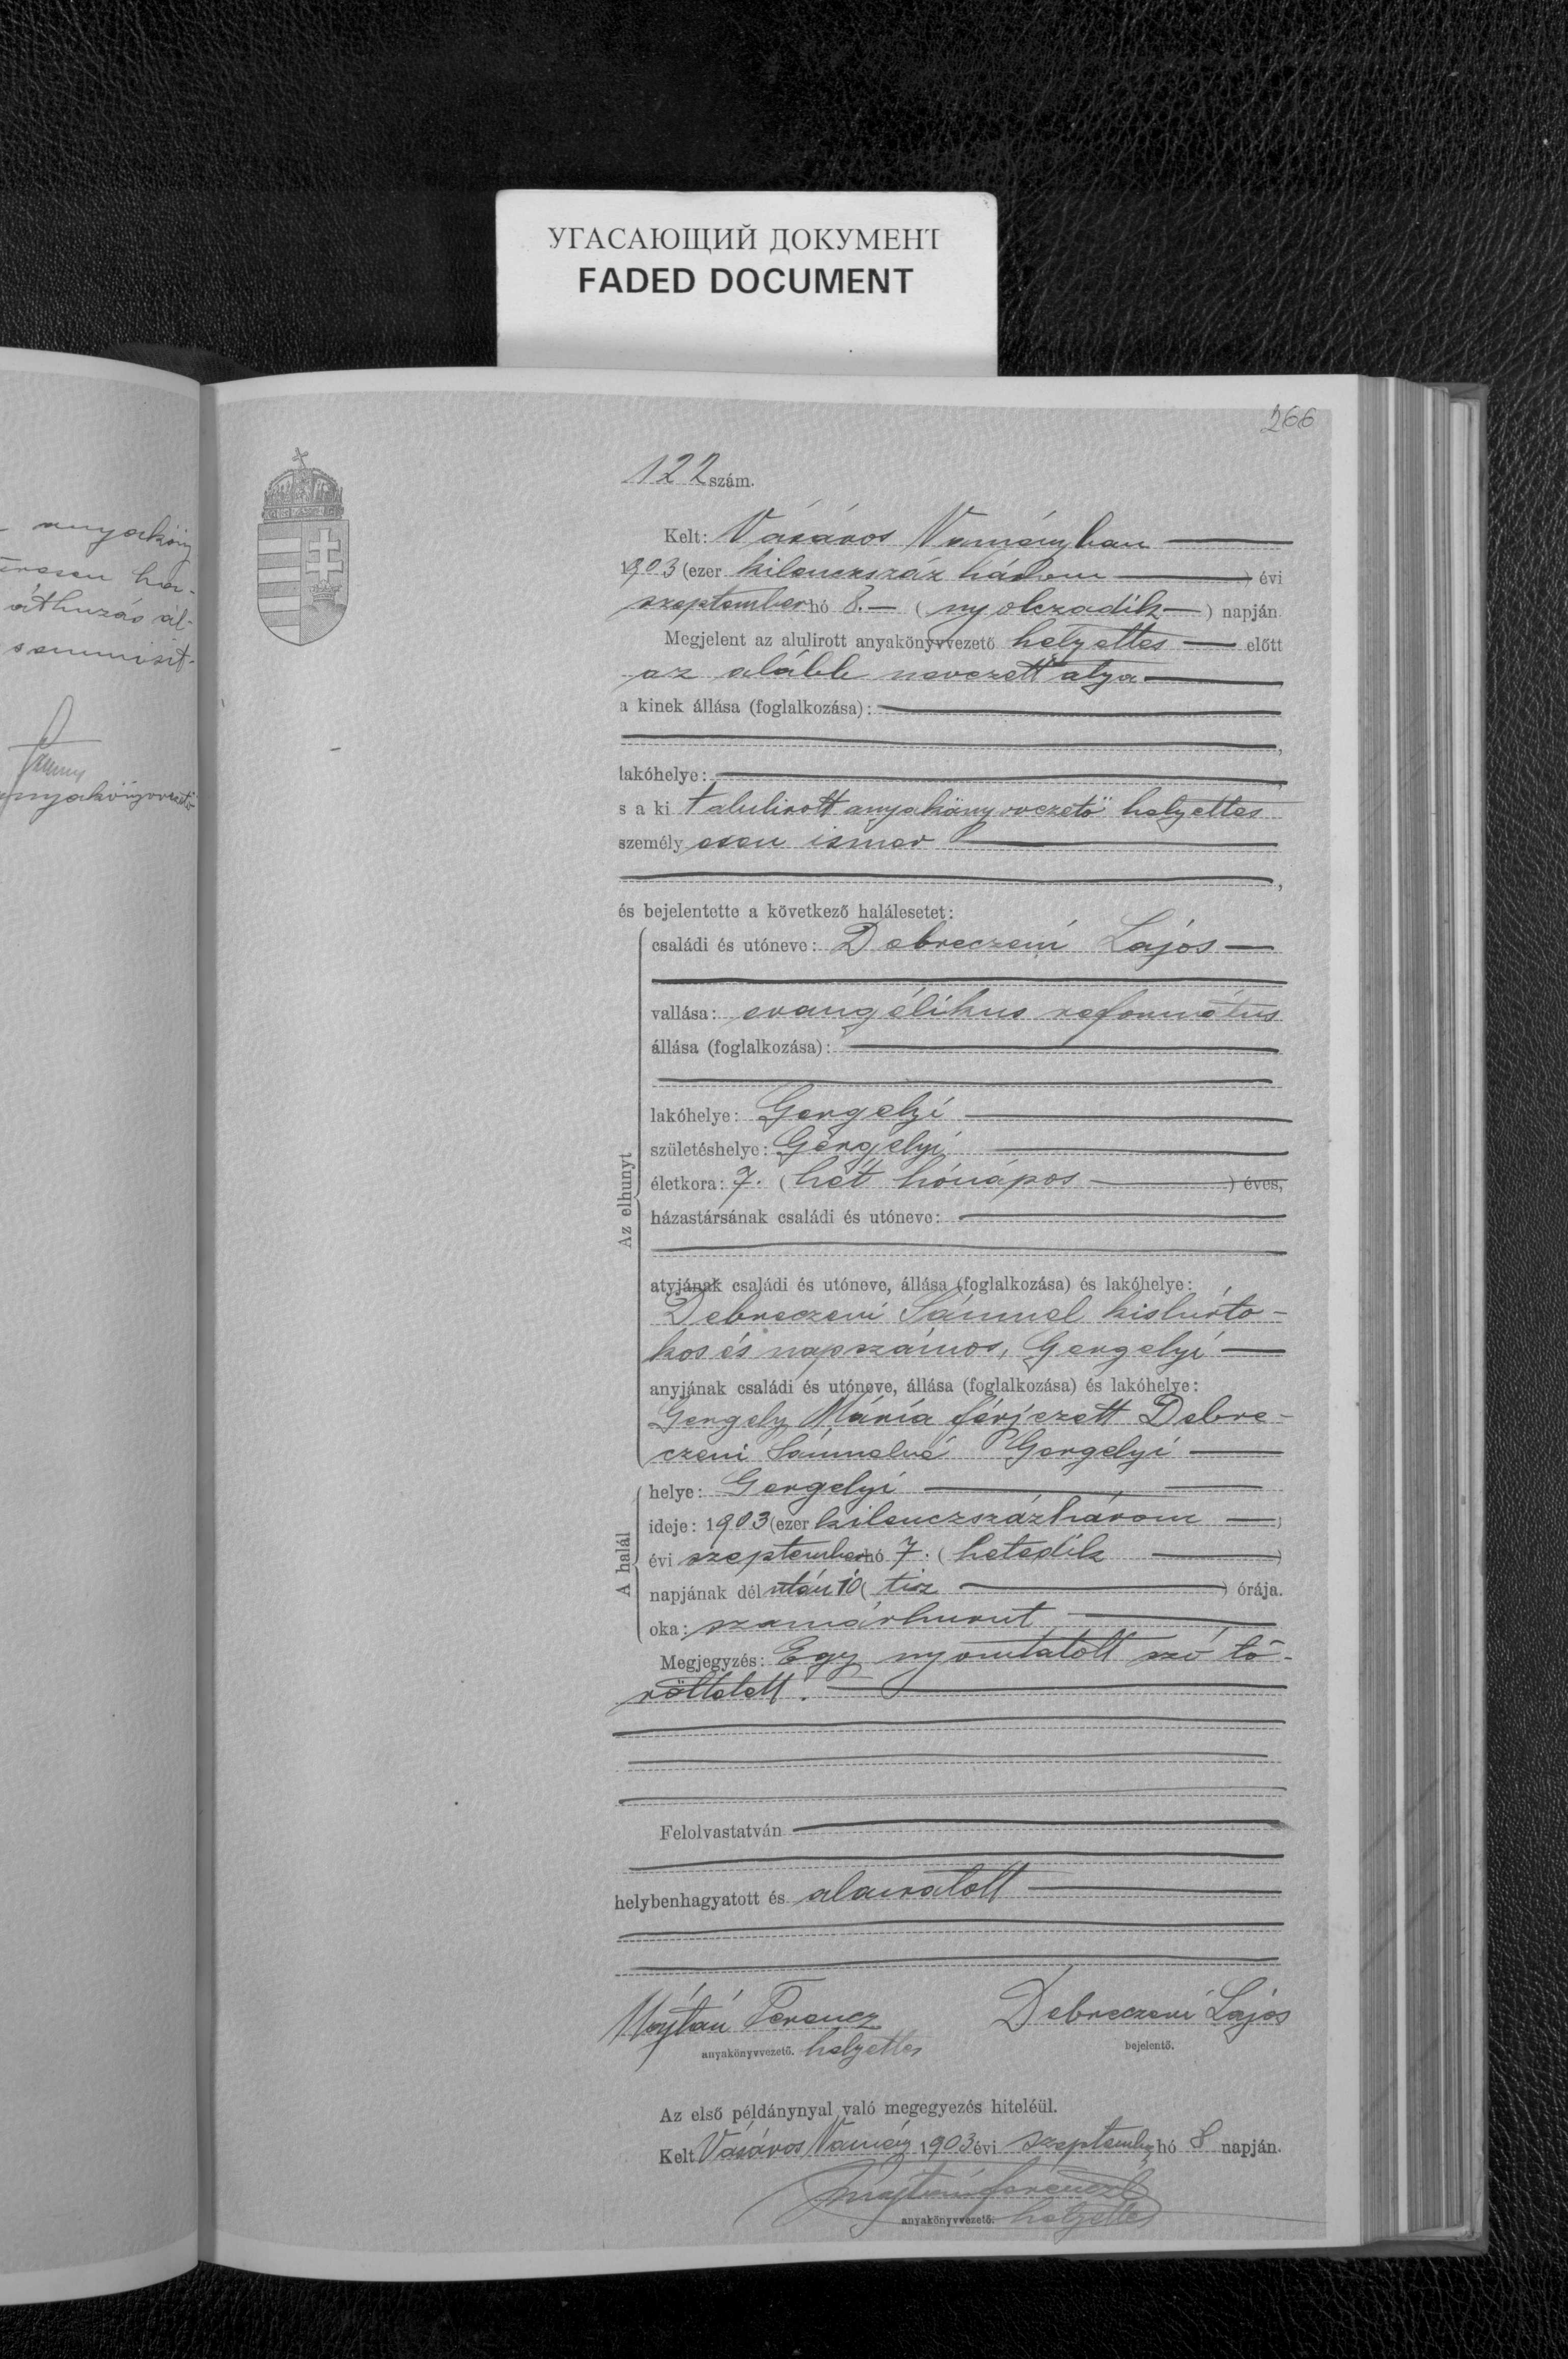 УГАСАЮЩИЙ ДОКУМЕНТ
FADED DOCUMENT
266
122 szám.
Kelt: Vásáros Naményban
1903 (ezer kilenczszáz három) évi
szeptember hó 8. (nyolczadik) napján
Megjelent az alulirott anyakönyvvezető helyettes előtt
az alább nevezett atya
a kinek állása (foglalkozása):
lakóhelye:
s a ki t alulirott anyakönyvvezető helyettes
személyesen ismer
és bejelentette a következő halálesetet:
Az elhunyt
családi és utóneve: Debreczeni Lajos
vallása: evangélikus református
állása (foglalkozása):
lakóhelye: Gergelyi
születéshelye: Gergelyi
életkora: 7. (hét hónapos) éves,
házastársának családi és utóneve:
atyjának családi és utóneve, állása (foglalkozása) és lakóhelye:
Debreczeni Sámuel kisbirto-
kos és napszámos, Gergelyi
anyjának családi és utóneve, állása (foglalkozása) és lakóhelye:
Gergely Mária férjezett Debre-
czeni Sámuelné Gergelyi
A halál
helye: Gergelyi
ideje: 1903 (ezer kilenczszázhárom)
évi szeptember hó 7. (hetedik)
napjának dél után 10 (tiz) órája.
oka: szamárhurut
Megjegyzés: Egy nyomtatott szó tö-
röltetett.
Felolvastatván
helybenhagyatott és alairatott
Ferencz Debreczeni Lajos
anyakönyvvezető. helyettes bejelentő.
Az első példánynyal való megegyezés hiteléül.
Kelt Vásáros Namény 1903 évi szeptember hó 8 napján.
anyakönyvvezető. helyettes
anyaköny
áthuzás ál-